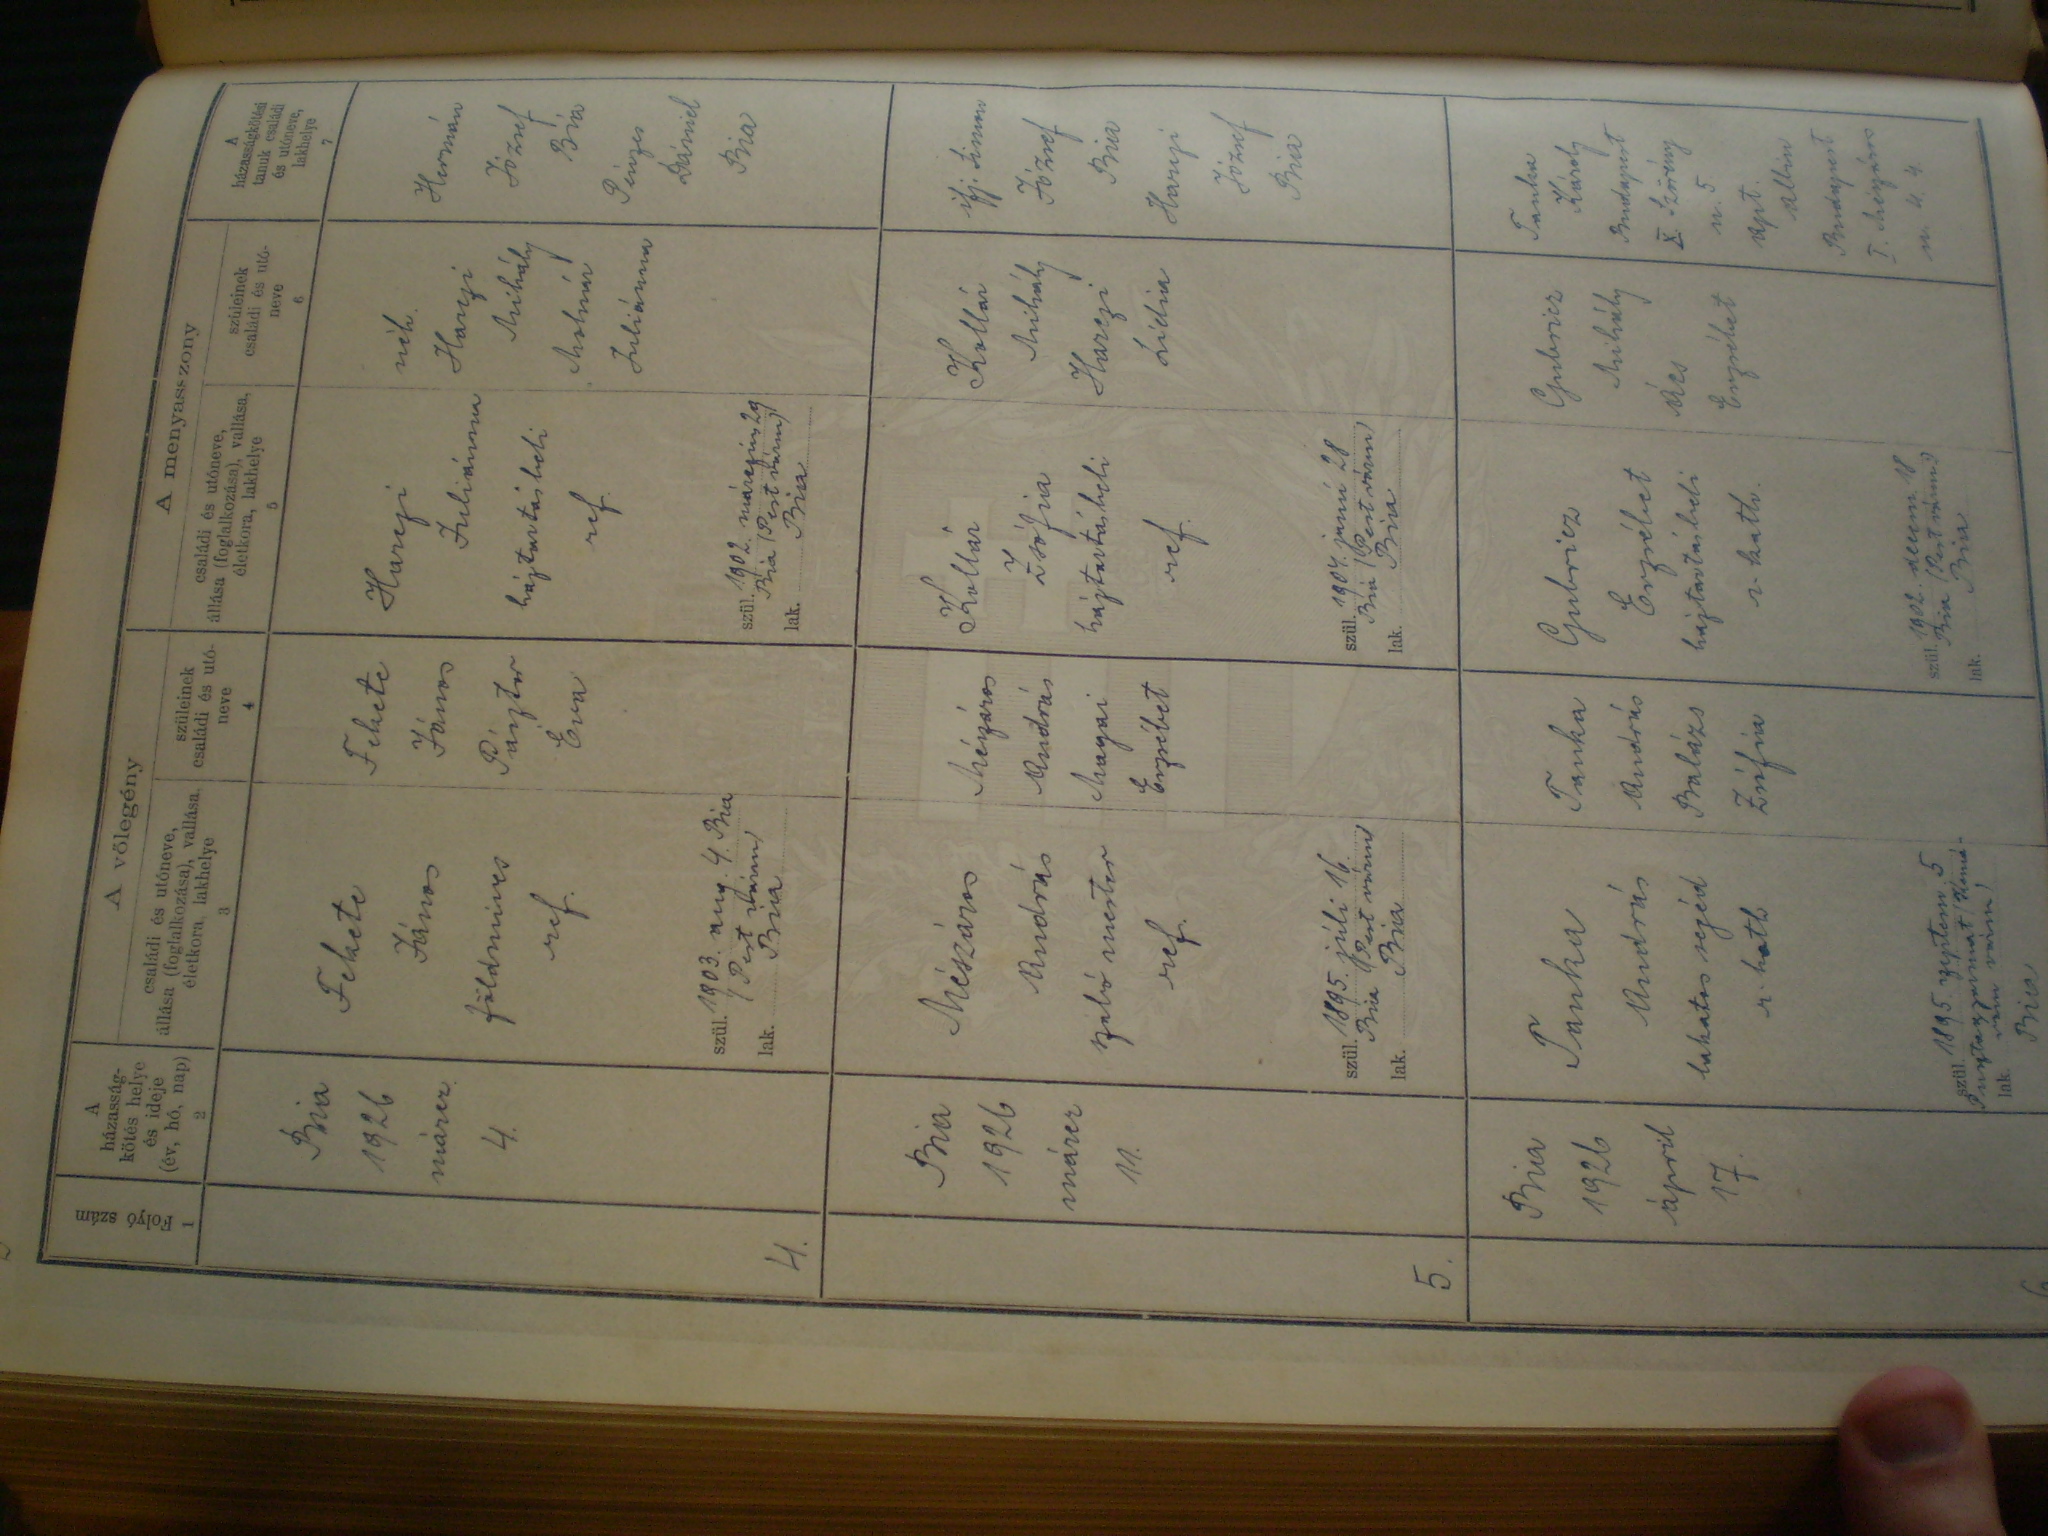 Folyó szám
1
A
házasság-
kötés helye
és ideje
(év, hó, nap)
2
A vőlegény
családi és utóneve,
állása (foglalkozása), vallása,
életkora, lakhelye
3
szüleinek
családi és utó-
neve
4
A menyasszony
családi és utóneve,
állása (foglalkozása), vallása,
életkora, lakhelye
5
szüleinek
családi és utó-
neve
6
A
házasságkötési
tanuk családi
és utóneve,
lakhelye
7
4.
Bia
1926
márcz.
4.
Fekete
János
földmíves
ref.
szül. 1903. aug. 4. Bia
(Pest várm)
lak. Bia
Fekete
János
Pásztor
Éva
Harczi
Juliánna
háztartásbeli
ref.
szül. 1902. márczius 29
Bia (Pest várm)
lak. Bia
néh.
Harczi
Mihály
Molnár
Juliánna
Hermán
József
Bia
Pénzes
Dániel
Bia
5.
Bia
1926
márcz
11.
Mészáros
András
szabó mester
ref.
szül. 1895. júli 16.
Bia (Pest várm)
lak. Bia
Mészáros
András
Magyai
Erzsébet
Kollár
Zsófia
háztartásbeli
ref.
szül. 1904. júni 28
Bia (Pest várm)
lak. Bia
Kollár
Mihály
Harczi
Lidia
ifj. Simon
József
Bia
Harczi
József
Bia
Bia
1926
április
17.
Tanka
András
lakatos segéd
r. kath
szül. 1895. szeptem. 5
lak.
Bia
Tanka
András
Balázs
Zsófia
Gubricz
Erzsébet
háztartásbeli
r. kath.
szül. 1902. decem. 18
Bia (Pest várm)
lak. Bia
Gubricz
Mihály
Ács
Erzsébet
Tanka
Károly
Budapest
X. Szörény
u. 5
Budapest
I.
u. 4. 4.